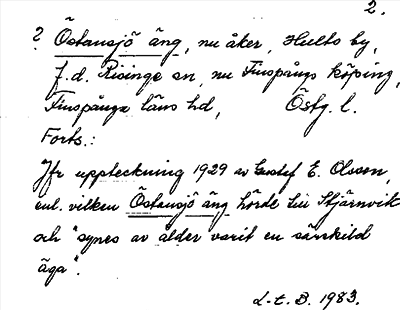 2.
? Östansjö äng, nu åker, Hults by,
f.d. Risinge sn, nu Finspångs köping,
Finspånga läns hd, Östg. l.
Forts.:
Jfr uppteckning 1929 av Gustaf E. Olsson,
enl. vilken Östansjö äng hörde till Stjärnvik
och "synes av ålder varit en särskild
äga".
L.t.B. 1983.